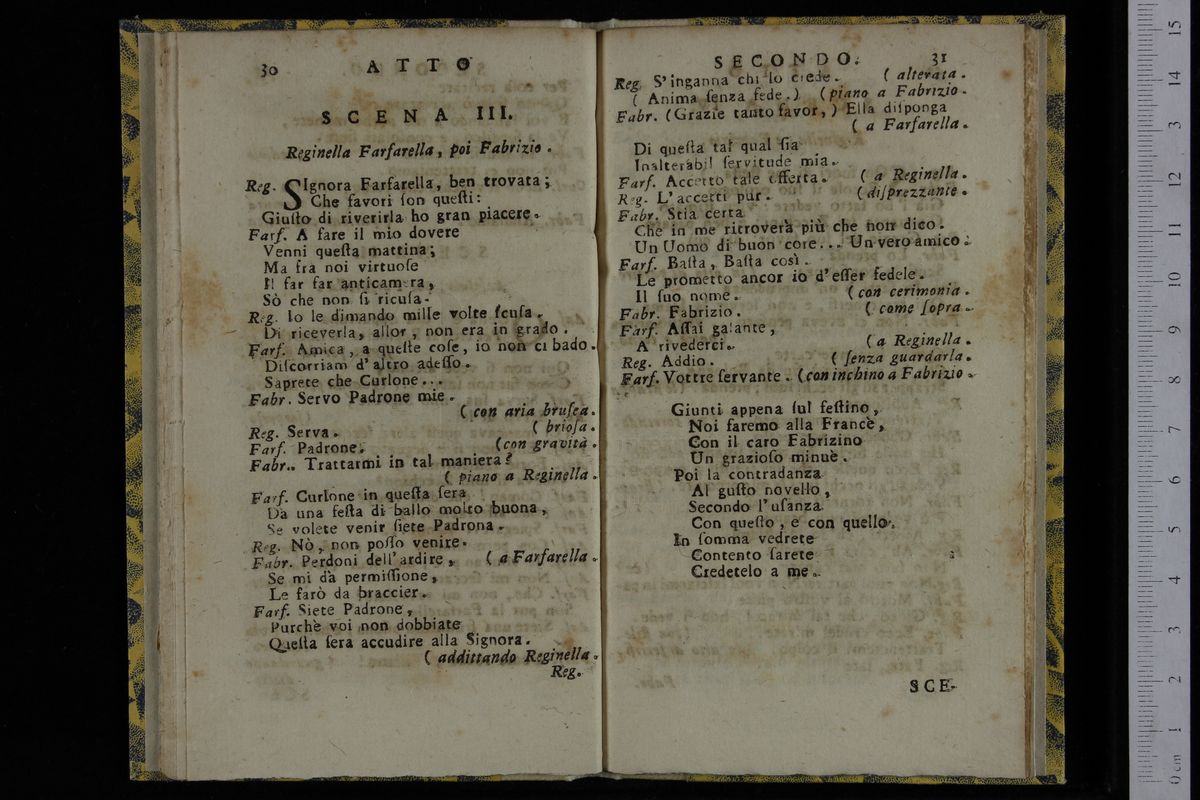 30 ATTO
SCENA III.
Reginella Farfarella, poi Fabrizio.
Reg. SIgnora Farfarella, ben trovata;
Che favori ſon queſti:
Giuſto di riverirla ho gran piacere.
Farf. A fare il mio dovere
Venni queſta mattina;
Ma fra noi virtuoſe
Il far far anticamera,
Sò che non ſi ricuſa.
Reg. Io le dimando mille volte ſcuſa.
Di riceverla, allor, non era in grado.
Farf. Amica, a queſte coſe, io non ci bado.
Diſcorriam d'altro adeſſo.
Saprete che Curlone...
Fabr. Servo Padrone mie.
( con aria bruſca.
Reg. Serva. ( brioſa.
Farf. Padrone. (con gravità.
Fabr.. Trattarmi in tal maniera?
( piano a Reginella.
Farf. Curlone in queſta ſera
Dà una feſta di ballo molto buona,
Se volete venir ſiete Padrona.
Reg. Nò, non poſſo venire.
Fabr. Perdoni dell'ardire, ( a Farfarella.
Se mi dà permiſſione,
Le farò da braccier.
Farf. Siete Padrone,
Purchè voi non dobbiate
Queſta ſera accudire alla Signora.
( addittando Reginella.
Reg.
SECONDO. 31
Reg. S'inganna chi lo crede. ( alterata.
( Anima ſenza fede.) (piano a Fabrizio.
Fabr. (Grazie tanto favor,) Ella diſponga
( a Farfarella.
Di queſta tal qual ſia
Inalterabil ſervitude mia.
Farf. Accetto tale offerta. ( a Reginella.
Reg. L'accetti pur. (diſprezzante.
Fabr. Stia certa
Che in me ritroverà più che non dico.
Un Uomo di buon core... Un vero amico.
Farf. Baſta, Baſta così.
Le prometto ancor io d'eſſer fedele.
Il ſuo nome. (con cerimonia.
Fabr. Fabrizio. ( come ſopra.
Farf. Aſſai galante,
A rivederci. (a Reginella.
Reg. Addio. ( ſenza guardarla.
Farf. Vottre ſervante. (con inchino a Fabrizio.
Giunti appena ſul feſtino,
Noi faremo alla France,
Con il caro Fabrizino
Un grazioſo minuè.
Poi la contradanza
Al guſto novello,
Secondo l'uſanza.
Con queſto, e con quello.
In ſomma vedrete
Contento ſarete
Credetelo a me.
SCE-
15
14
13
12
11
10
9
8
7
6
5
4
3
2
1
0 cm